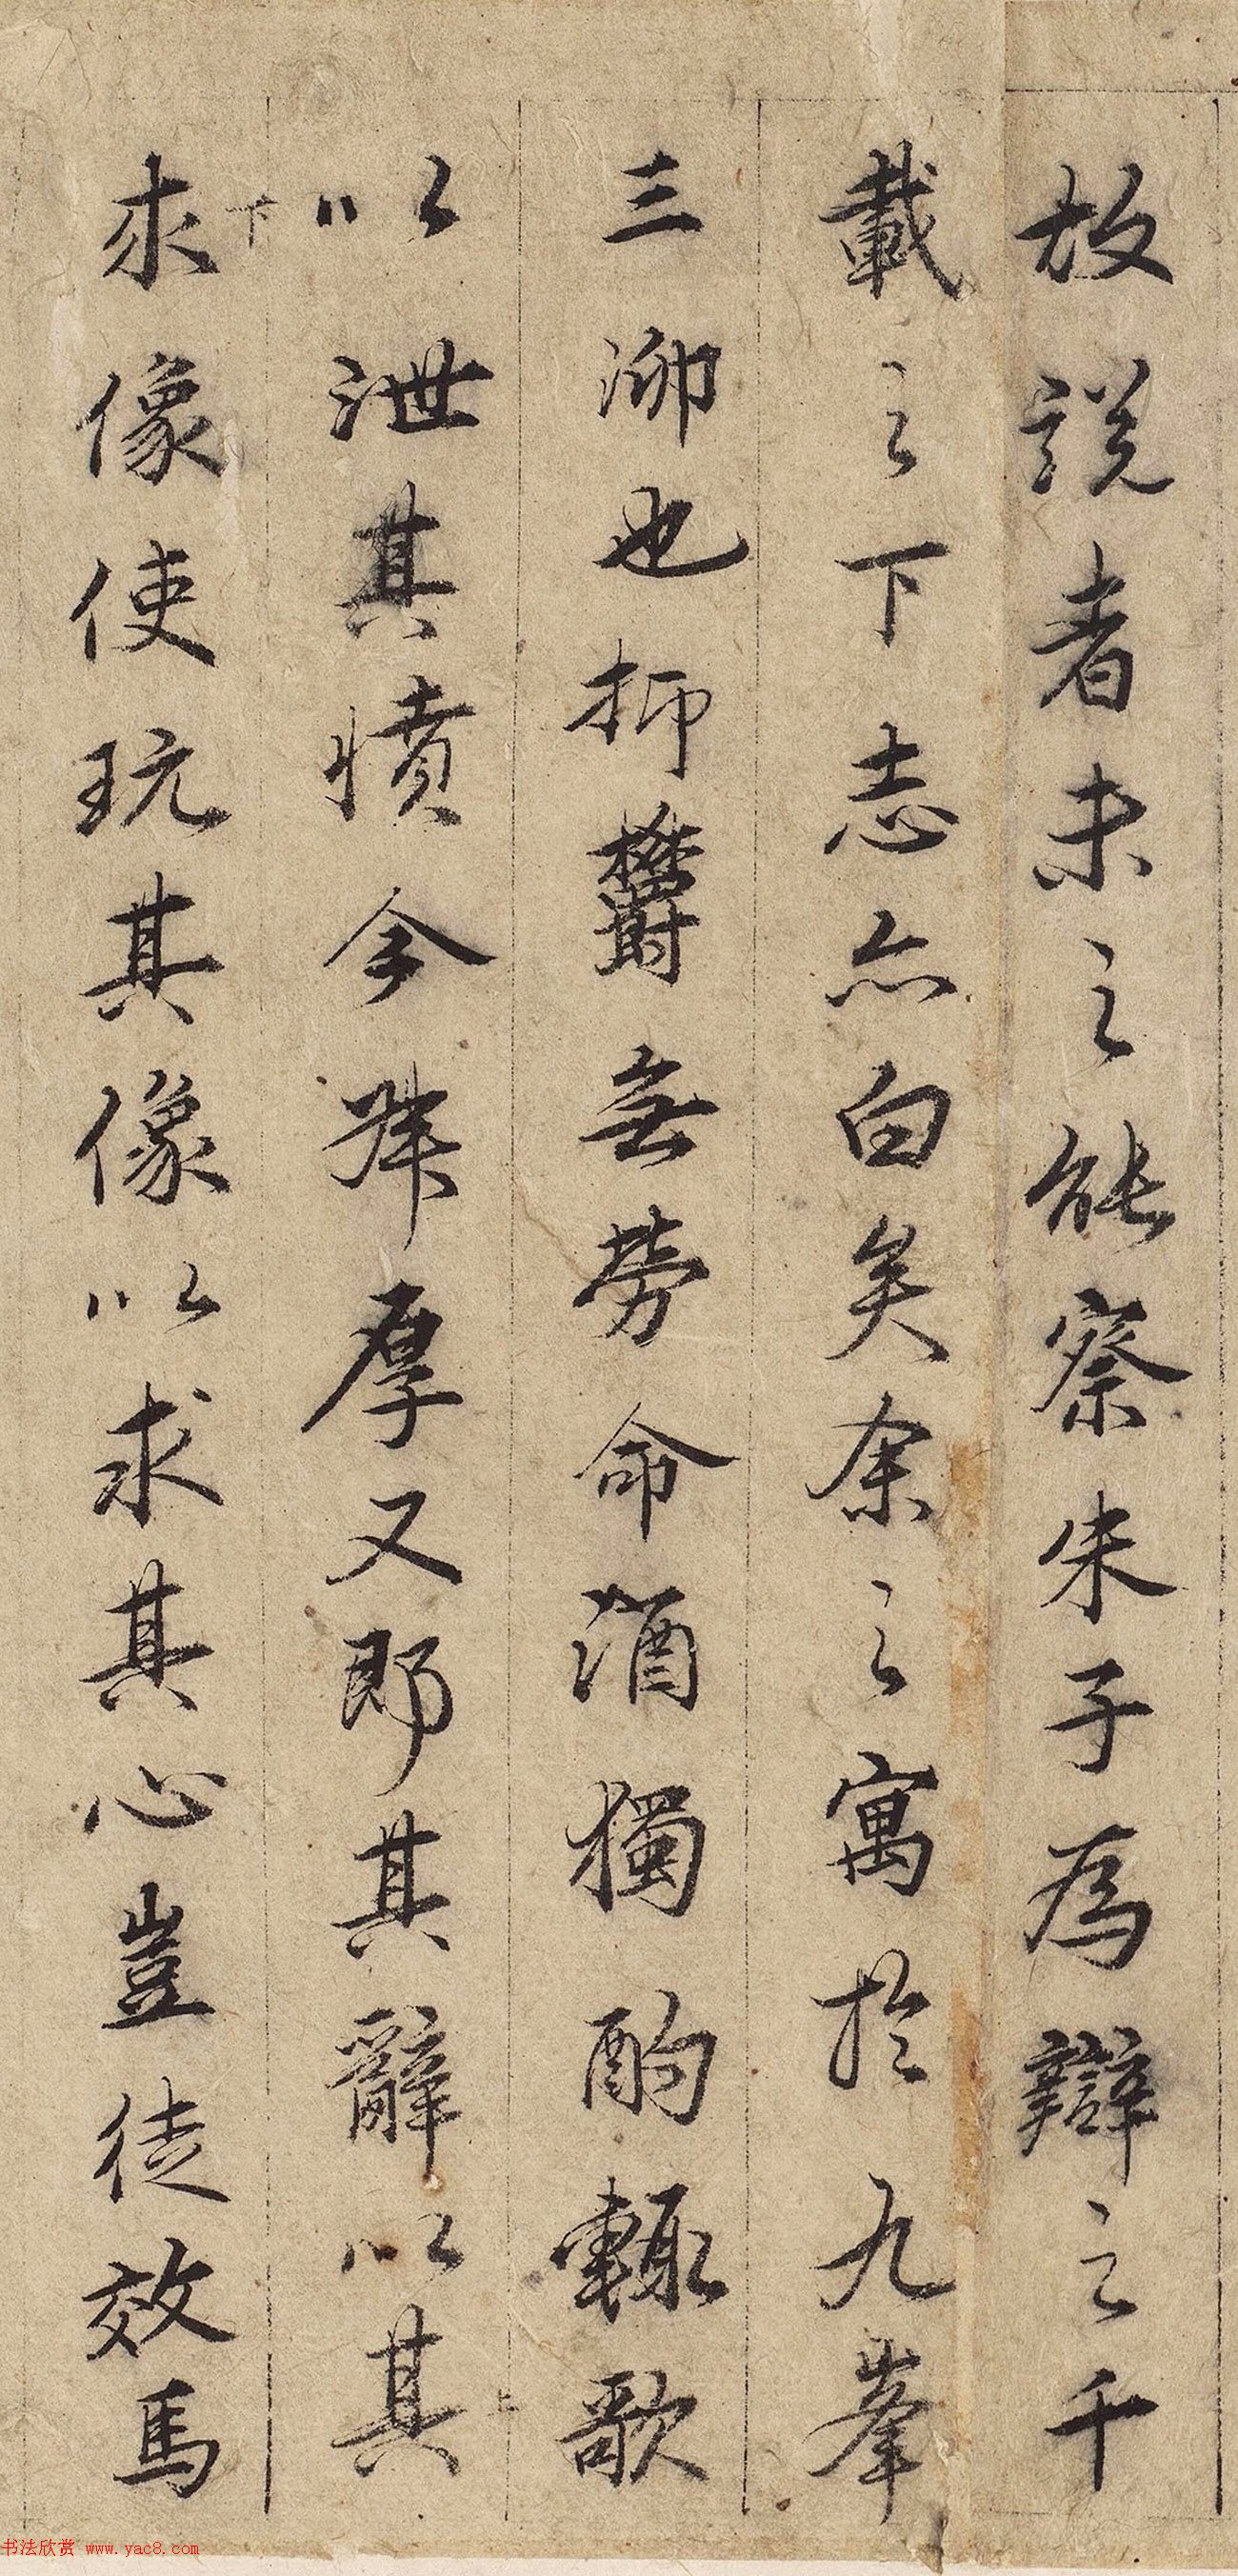 故說者未之能察朱子為辯之千
載之下志亦白矣余之寓於九峯
三泖也抑鬱無命酒獨酌輒歌
上
以泄其憤今叔厚又即其辭以其
下
求像使玩其像以求其心豈徒效馬
书法欣赏 www.yac8.com